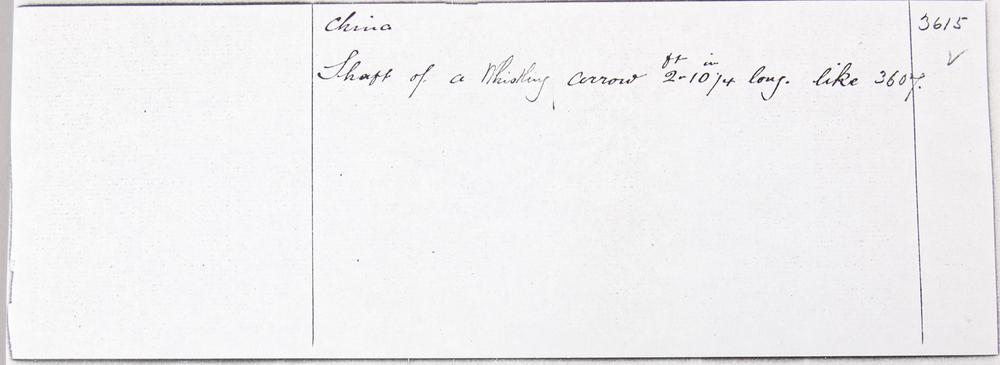 China 3615
ft in
Shaft of a Whistling arrow 2-10 1/4 long. like 3607.